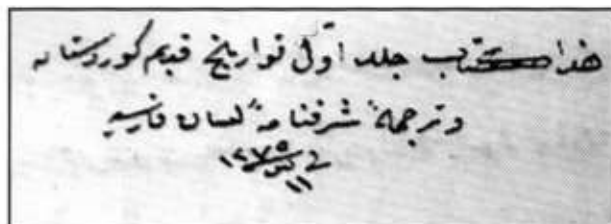 هذا كتاب جلد اوّل تواريخ قديم كوردستان
و ترجمهٔ شرفنامهٔ لسان فارسيه
في سنة ١٢٧٥
١١